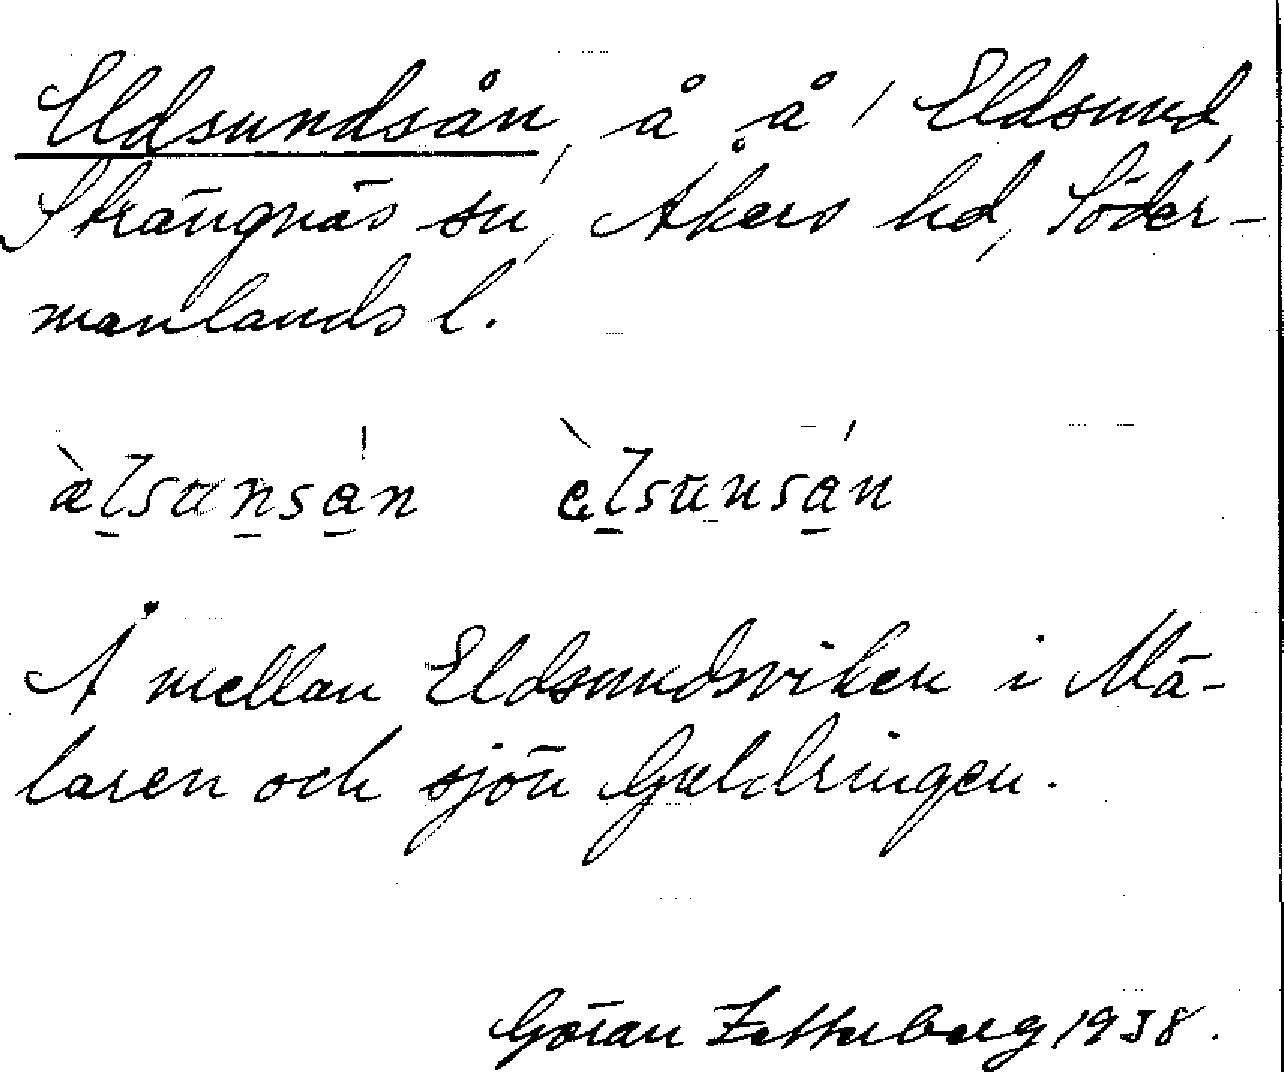 Eldsundsån, å å i Eldsund,
Strängnäs sn, Åkers hd, Söder-
manlands l.
æ̀lsunsån èlsunsån
Å mellan Eldsundsviken i Mä-
laren och sjön Guldringen.
Göran Zetterberg 1938.